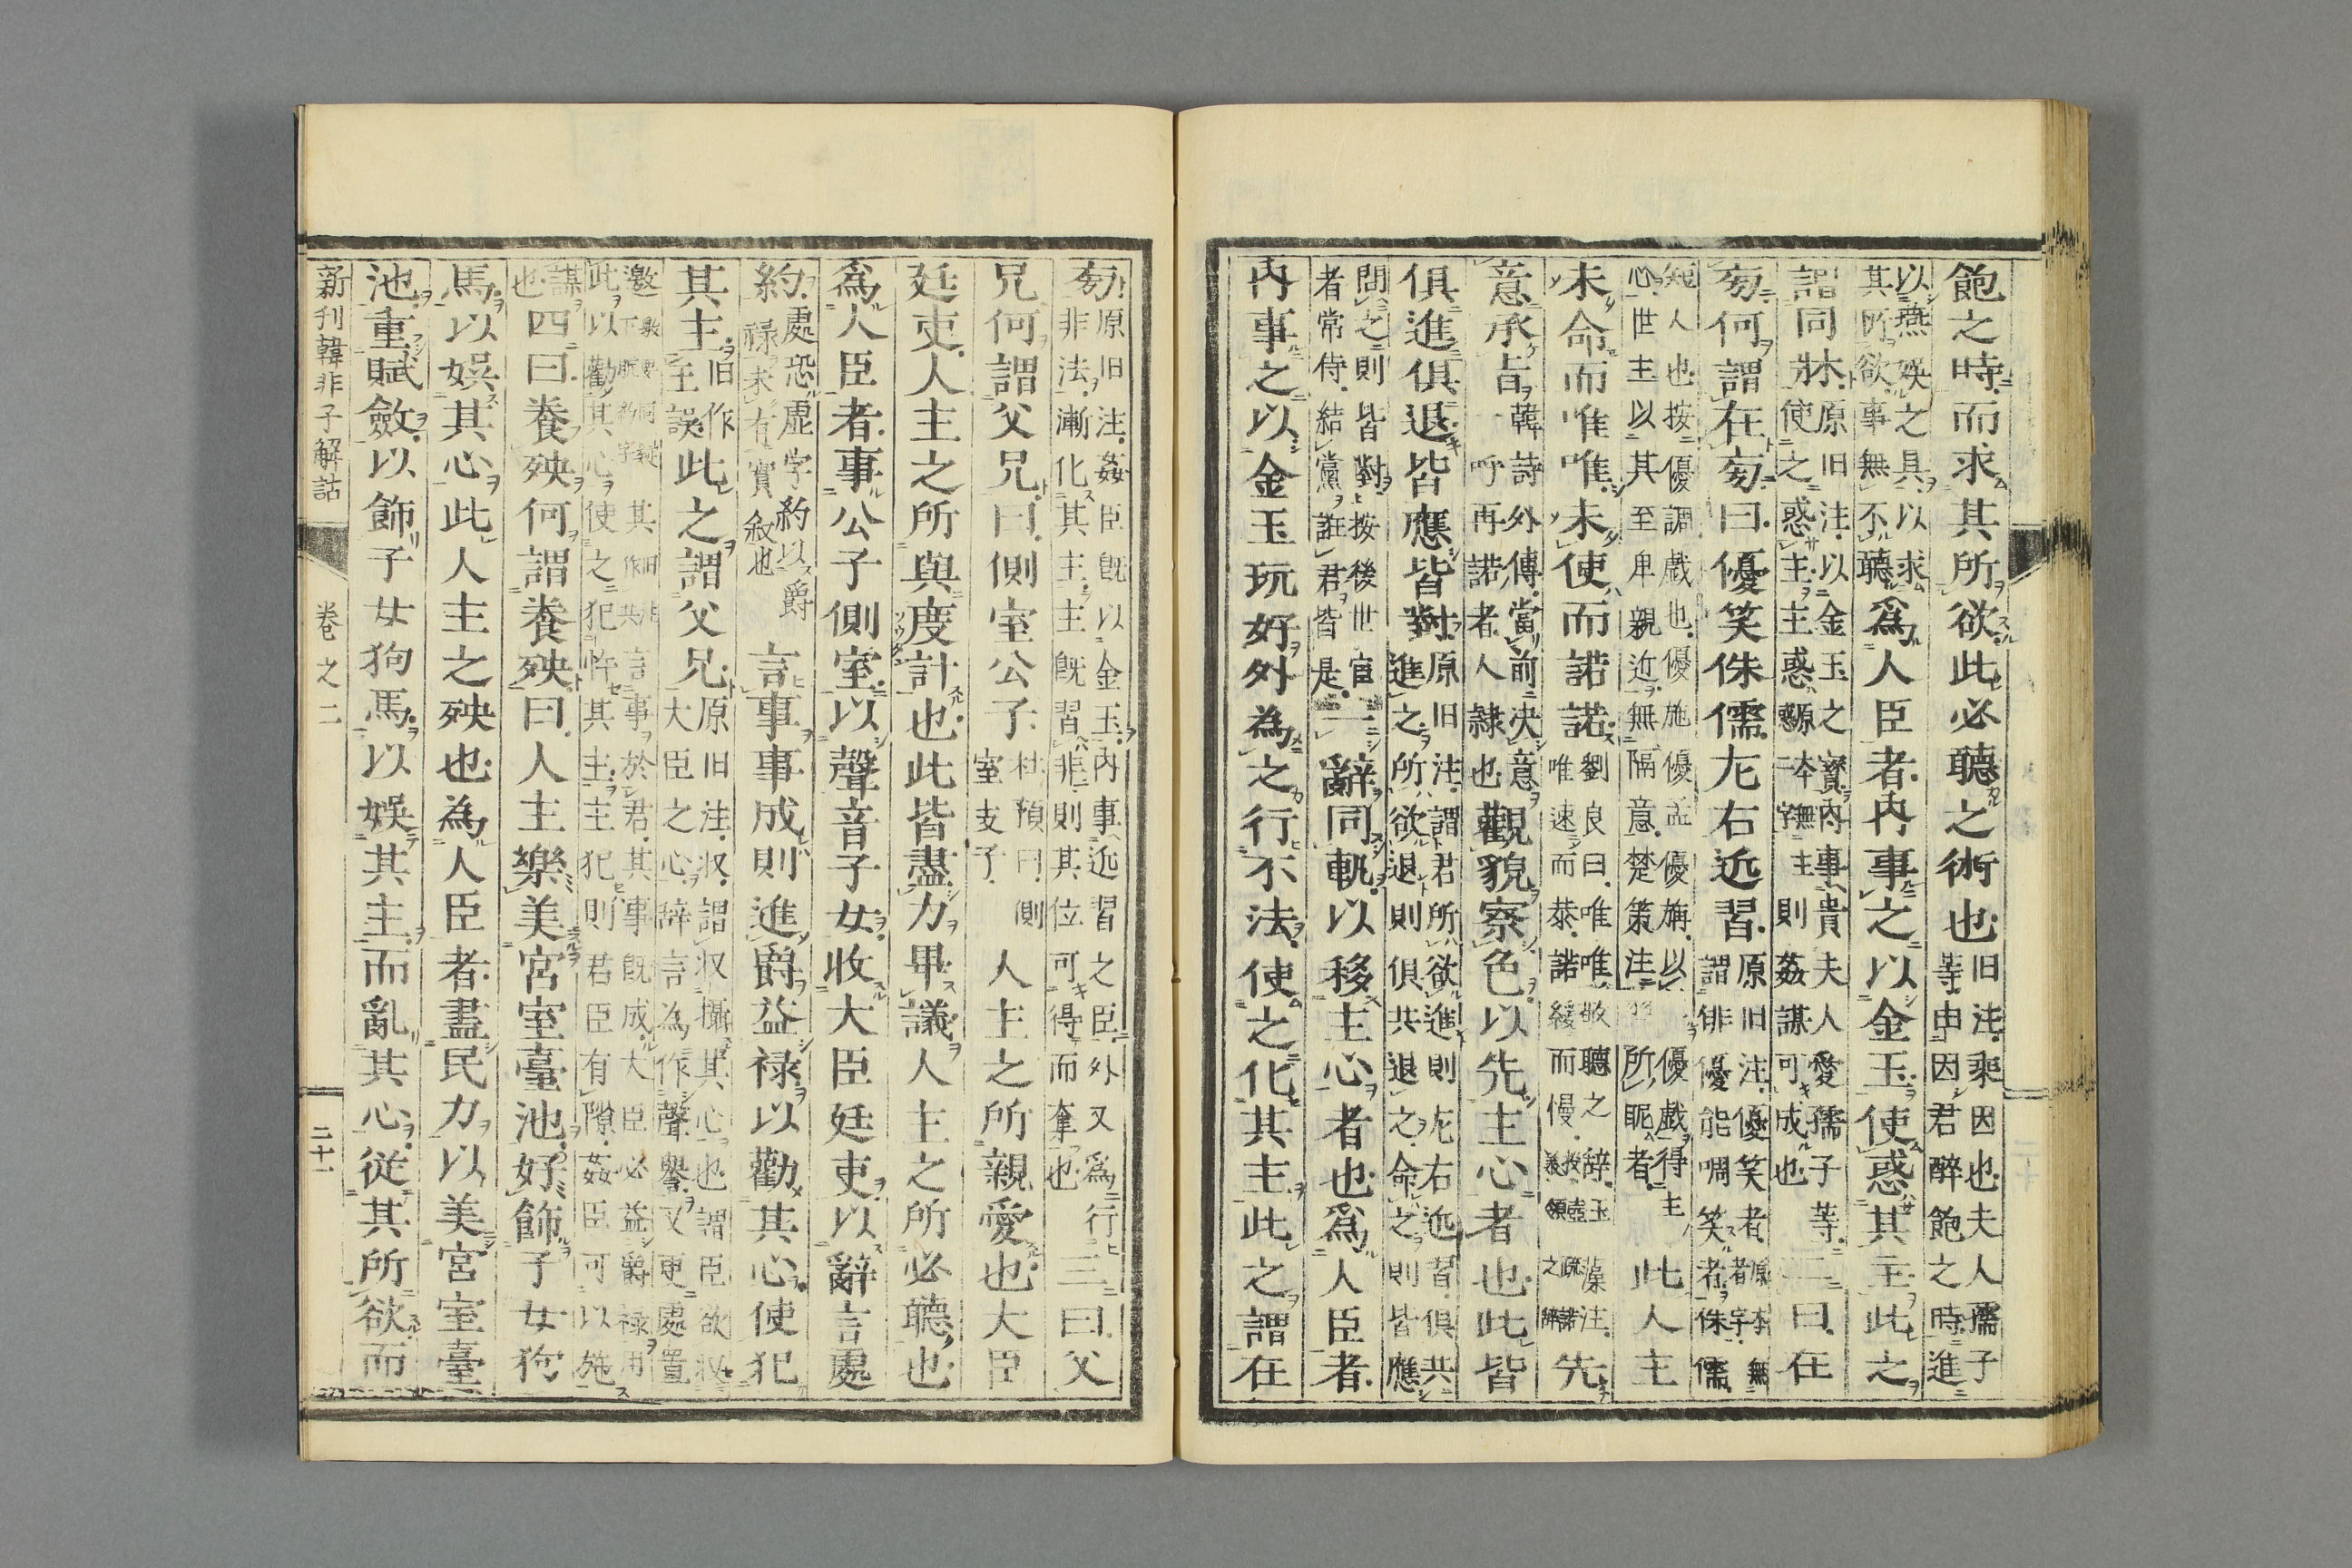 飽之時而求其所欲此必聽之術也旧注乘因也夫人孺子等由因君醉飽之時進
以燕娛之具以求其所欲事無不聽爲人臣者內事之以金玉使惑其主此之
謂同牀原旧注以金玉之寳內事貴夫人愛孺子等使之惑主主惑則姦謀可成也二曰在
㫄何謂在㫄曰優笑侏儒左右近習原旧注優笑者謂俳優能啁笑者侏儒
短人也按優調戲也優施優孟優旃以優戲得主心世主以其至卑親近無隔意楚策法所昵者此人主
未命而唯唯未使而諾諾劉良曰唯唯敬聽之辭玉藻注唯速而恭諾緩而慢先
意承旨韓詩外傳當前決意一呼再諾者人隷也觀貌察色以先主心者也此皆
俱進俱退皆應皆對原旧注謂君所欲進則左右近習俱共進之所欲退則俱共退之命之則皆應
問之則皆對按後世宦者常侍結黨誑君皆是一辭同軌以移主心者也爲人臣者
內事之以金玉玩好外為之行不法使之化其主此之謂在
㫄原旧注姦臣既以金玉內事近習之臣外又爲行非法漸化其主主既習非則其位可得而奪也三曰父
兄何謂父兄曰側室公子杜預曰側室支子人主之所親愛也大臣
廷吏人主之所與度計也此皆盡力畢議人主之所必聽也
爲人臣者事公子側室以聲音子女收大臣廷吏以辭言處
約處恐虛字約以爵祿未有實敘也言事事成則進爵益祿以勸其心使犯
其主旧作主誤此之謂父兄原旧注收謂收攝其心也謂臣欲收大臣之心辭言為作聲譽又更處置
言事於君其事既成大臣必益爵祿用此以勸其心使之犯忤其主主犯則君臣有隙姦臣可以施
謀也四曰養殃何謂養殃曰人主樂美宮室臺池好飾子女狗
馬以娯其心此人主之殃也為人臣者盡民力以美宮室臺
池重賦斂以飾子女狗馬以娯其主而亂其心從其所欲而
新刊韓非子解詁 卷之二 二十一